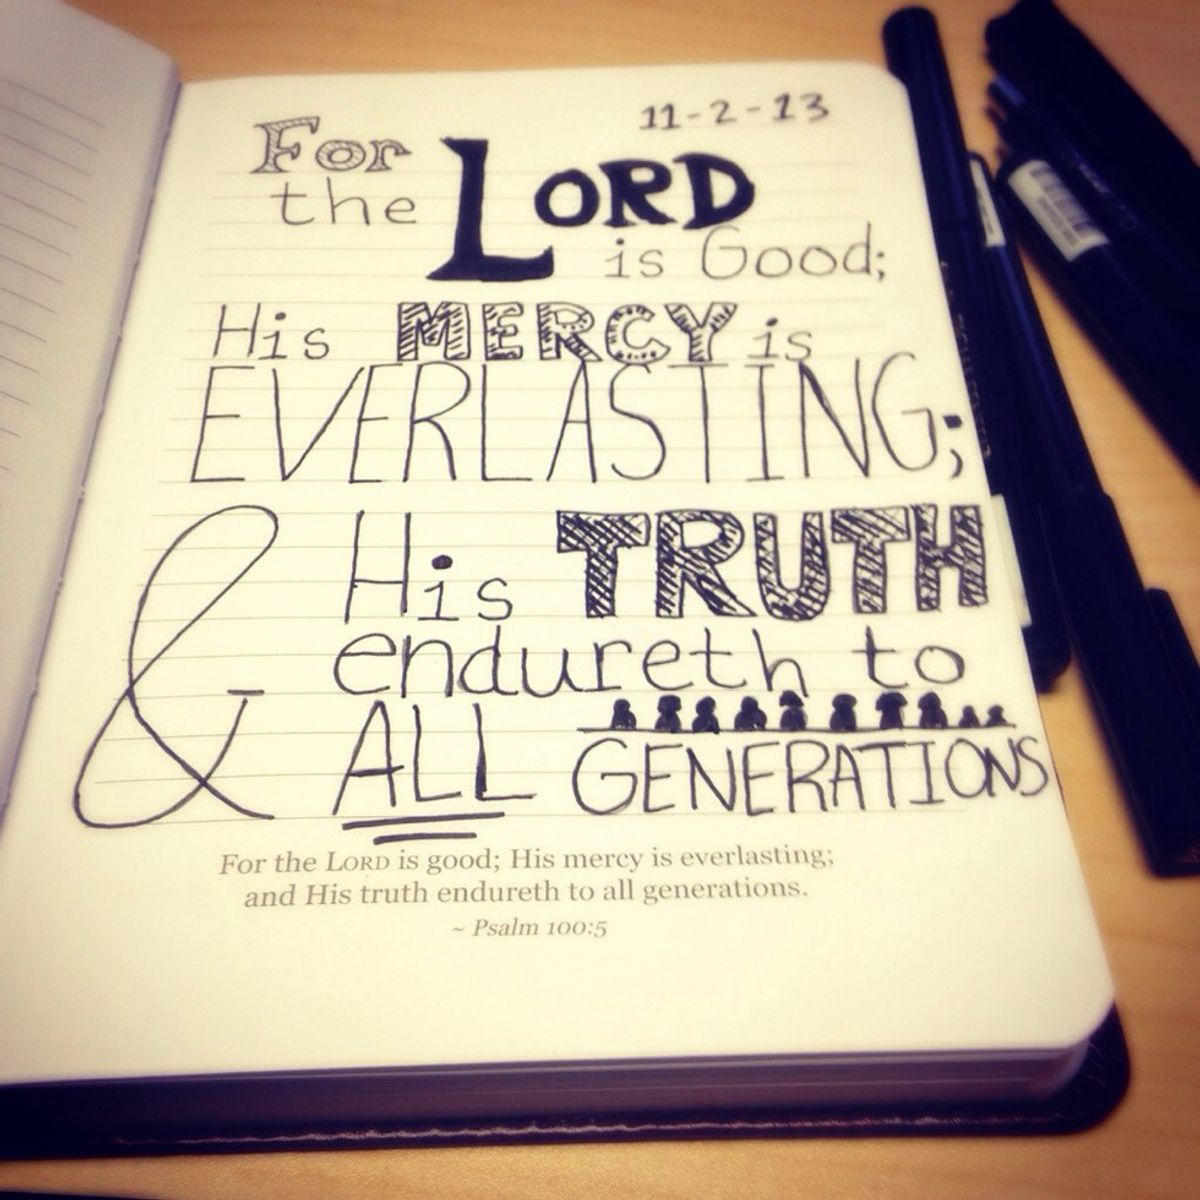 11-2-13
For
the LORD
is Good;
His MERCY is
EVERLASTING;
& His TRUTH
endureth to
ALL GENERATIONS
For the LORD is good; His mercy is everlasting;
and His truth endureth to all generations.
~ Psalm 100:5